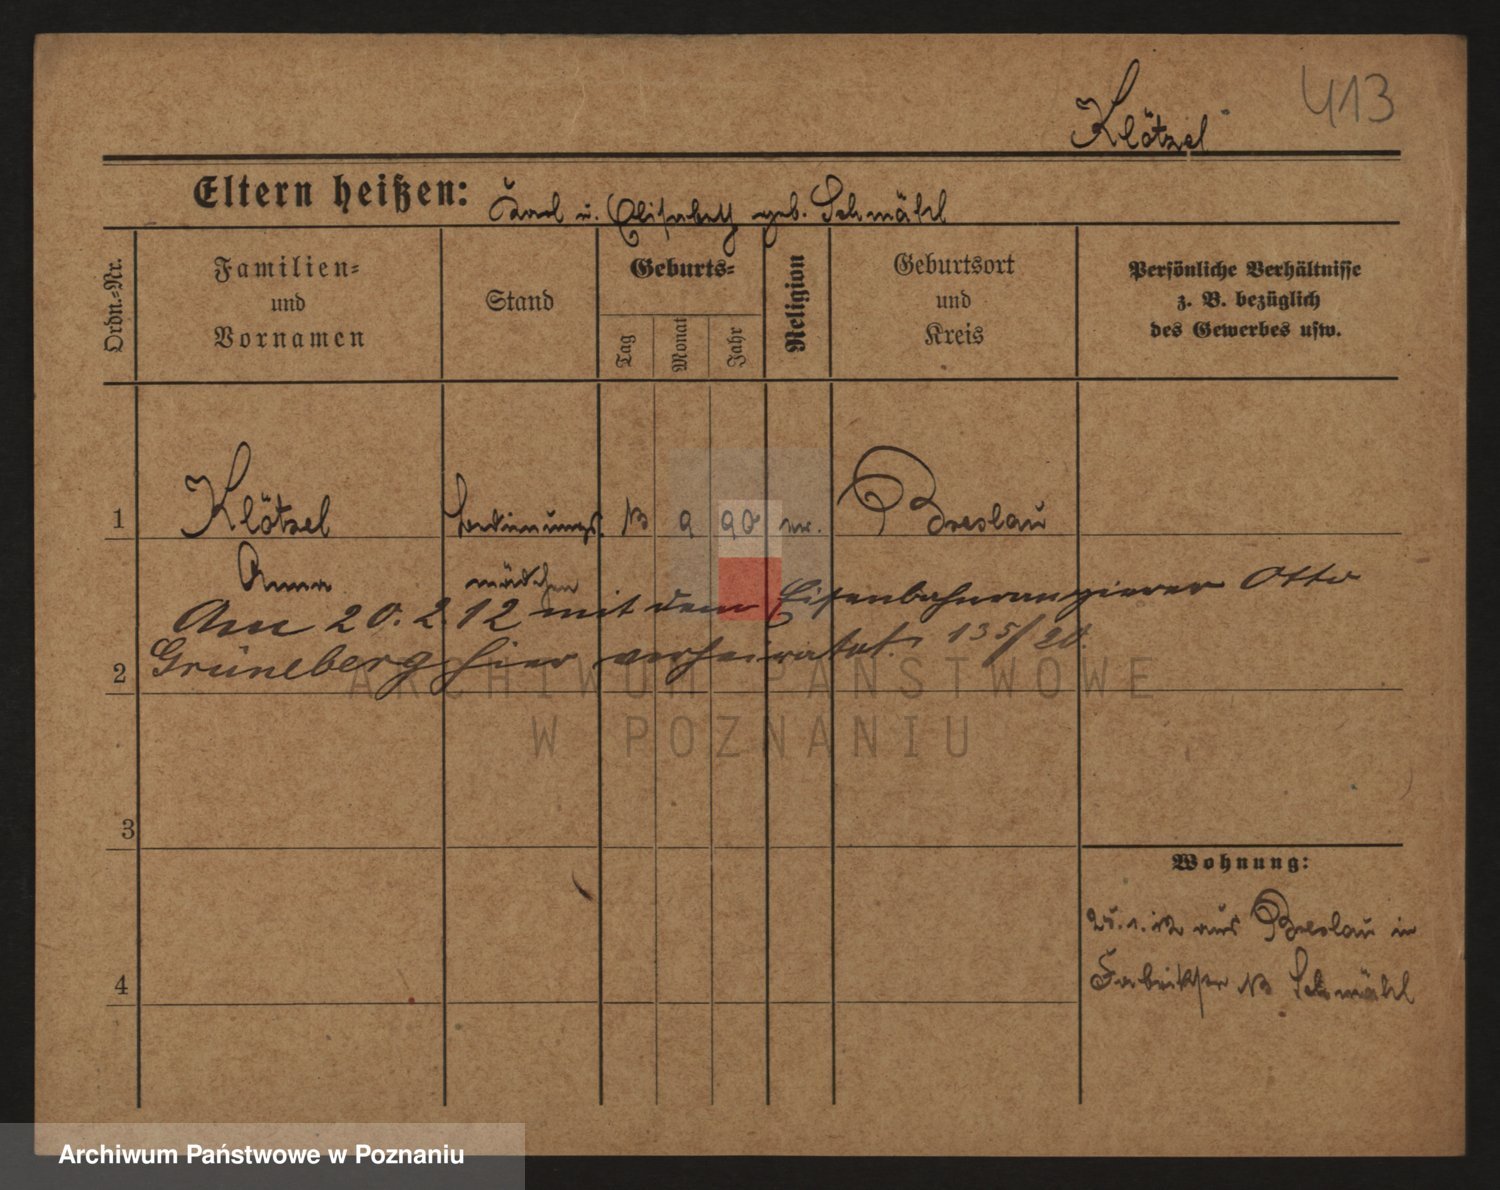 413
Klötzel
Eltern heißen: Karl u. Elisabeth geb. Schmähl
Ordn.-Nr.
Familien-
und
Vornamen
Stand
Geburts-
Tag
Monat
Jahr
Religion
Geburtsort
und
Kreis
Persönliche Verhältnisse
z. B. bezüglich
des Gewerbes usw.
1 Klötzel Bedienungs 13 9 90 ev. Breslau
Anna mädchen
Am 20.2.12 mit dem Eisenbahnrangierer Otto
2 Grüneberg hier verheiratet. 135/20.
3
Wohnung:
aus Breslau in
4 13 Schmähl
ARCHIWUM PAŃSTWOWE
W POZNANIU
Archiwum Państwowe w Poznaniu